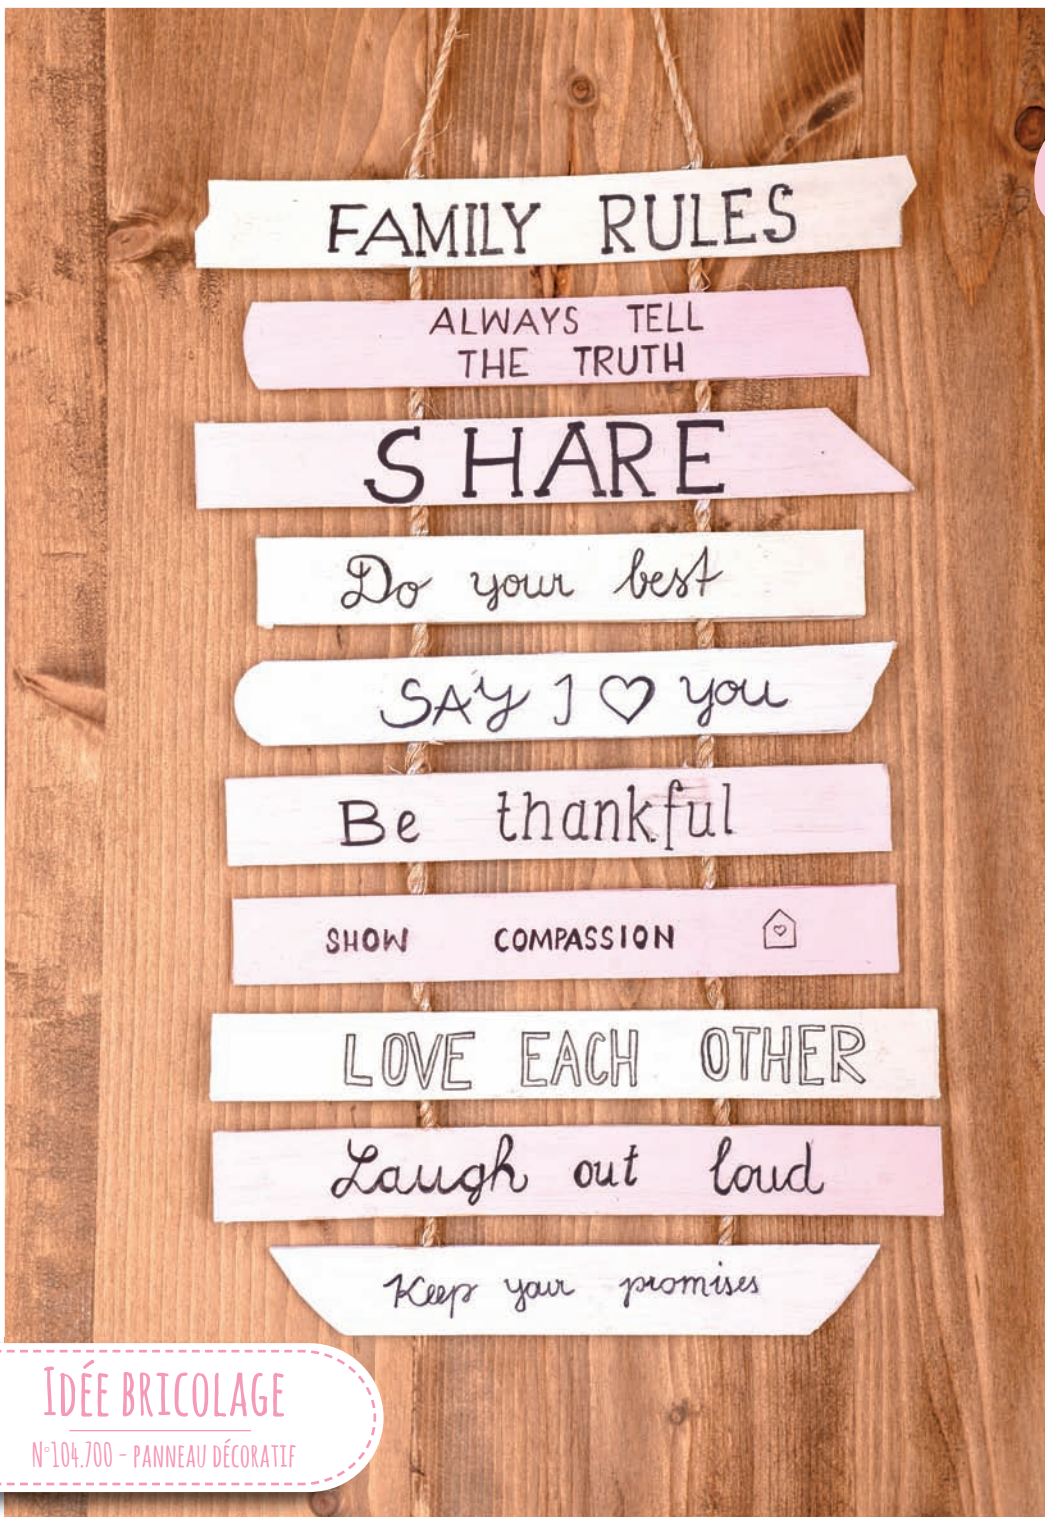 FAMILY RULES
ALWAYS TELL
THE TRUTH
SHARE
Do your best
SAY I ♡ you
Be thankful
SHOW COMPASSION
LOVE EACH OTHER
Laugh out loud
Keep your promises
IDÉE BRICOLAGE
N°104.700 - PANNEAU DÉCORATIF